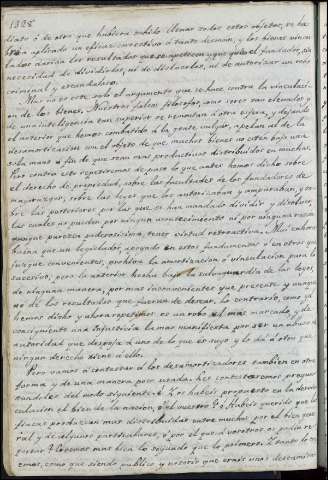 1328
diato ó de otro que hubiera sabido llenar todos estos objetos, se ha-
bría aplicado un eficaz correctivo á tanto desman, y los bienes vincu-
lados darían los resultados que se apetecen y que quiso el fundador, sin
necesidad de dividirlos, ni de disolverlos, ni de autorizar un robo
criminal y escandaloso.
Mas no es este solo el argumento que se hace contra la vinculaci-
on de los bienes. Nuestros falsos filosofos, como seres tan elevados y
de una inteligencia tan superior se remontan á otra esfera, y dejando
el anterior que hemos combatido á la gente vulgar, apelan al de la
desamortizacion con el objeto de que muchos bienes no esten bajo una
sola mano á fin de que sean mas productivos distribuidos en muchas.
Pero contra esto repetiremos de paso lo que antes hemos dicho sobre
el derecho de propiedad, sobre las facultades de los fundadores de
mayorazgos, sobre las leyes que los autorizaban y amparaban, y so-
bre las posteriores por las que se han mandado dividir y disolver,
las cuales no pueden por ningun acontecimiento ni por ninguna razon
aunque parezca poderosisima, tener virtud retroactiva. Mui enhora-
buena que un legislador, apoyado en estos fundamentos ó en otros que
juzgue convenientes, prohiba la amortizacion ó vinculacion para lo
sucesivo, pero la anterior hecha bajo la salvaguardia de las leyes,
de ninguna manera, por mas inconvenientes que presente y aunque
no dé los resultados que fueran de desear. Lo contrario, como ya
hemos dicho y ahora repetimos es un robo el mas marcado, y de
consiguiente una injusticia la mas manifiesta por ser un abuso de
autoridad que despoja á uno de lo que es suyo y lo da á otro que
ningun derecho tiene á ello.
Pero vamos á contestar á los desamortizadores tambien en otra
forma y de una manera poco usada: les contestaremos pregun-
tandoles del modo siguiente. ¿Os habeis propuesto en la desvin-
culacion el bien de la nacion, ó el vuestro? ¿Habeis querido que las
fincas produzcan mas distribuidas entre muchos, por el bien gene-
ral y de algunos particulares, ó por el que á vosotros os podia re-
portar? Vosotros mas bien lo segundo que lo primero. Y tanto lo cre-
emos, como que siendo publico y notorio que erais unos descamisa-